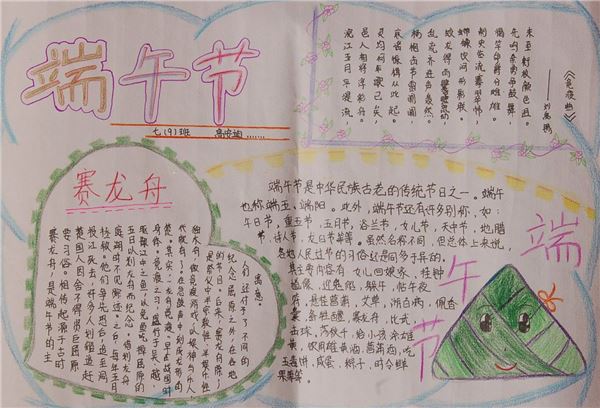 端午节
七(9)班 高悦迪......
《竞渡曲》
——刘禹锡
沅江五月平堤流,
邑人相将浮彩舟。
灵均何年歌已矣,
哀谣振楫从此起。
杨桴击节雷阗阗,
乱流齐进声轰然。
蛟龙得雨鬐鬣动,
螮蝀饮河形影联。
刺史临流褰翠帏,
揭竿命爵分雄雌。
先鸣余勇争鼓舞,
未至衔枚颜色沮。
赛龙舟
赛龙舟,是端午节的主
要习俗。相传起源于古时
楚国人因舍不得贤臣屈原
投江死去,许多人划船追赶
拯救。他们争先恐后,追至洞
庭湖时不见踪迹。之后每年五月
五日以划龙舟而纪念。借划龙舟
驱散江中之鱼,以免鱼吃掉屈原的
身体。竞渡之习,盛行于吴、越、
楚。其实,“龙舟竞渡”早在战国时
代就有了,在急鼓声中划刻成龙形的
独木舟,做竞渡游戏,以娱神与乐人,
是祭仪中半宗教性、半娱乐性
的节目。后来,赛龙舟除
纪念屈原之外,在各地
人们还付予了不同的
寓意。
端午节是中华民族古老的传统节日之一。端午
也称端五,端阳。此外,端午节还有许多别称,如:
午日节,重五节,五月节,浴兰节,女儿节,天中节,地腊
节,诗人节,龙日节等等。虽然名称不同,但总体上来说,
各地人民过节的习俗还是同多于异的。
其主要内容有 女儿回娘家,挂钟
馗像,迎鬼船,躲午,帖午夜
符,悬挂菖蒲,艾草,游百病,佩香
囊,备牲醴,赛龙舟,比武,
击球,荡秋千,给小孩涂雄
黄,饮用雄黄酒,菖蒲酒,吃
五毒饼,咸蛋,粽子,时令鲜
果等等。
端午节